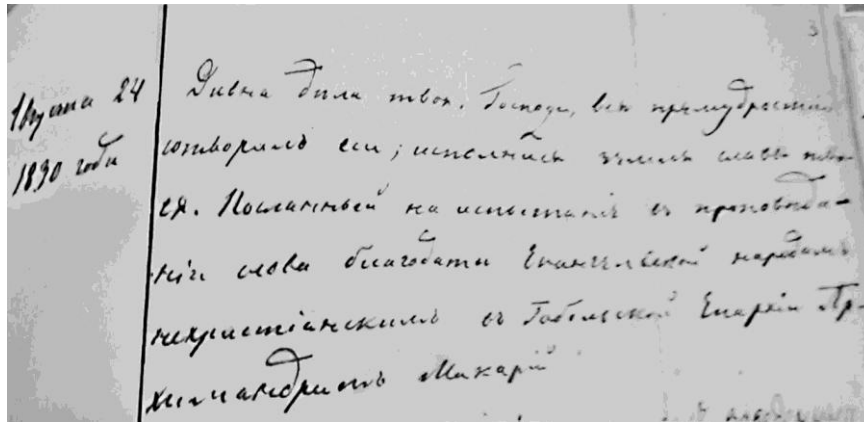 3
Августа 24
1830 года
Дивна дѣла твоя, Господи, вся премудростію
сотворилъ еси; исполнися земля славы тво-
ея. Посланный на испытаніе въ проповѣда-
ніи слова благодати Евангельской народамъ
нехристіанскимъ въ Тобольской Епархіи Ар-
химандритъ Макарій